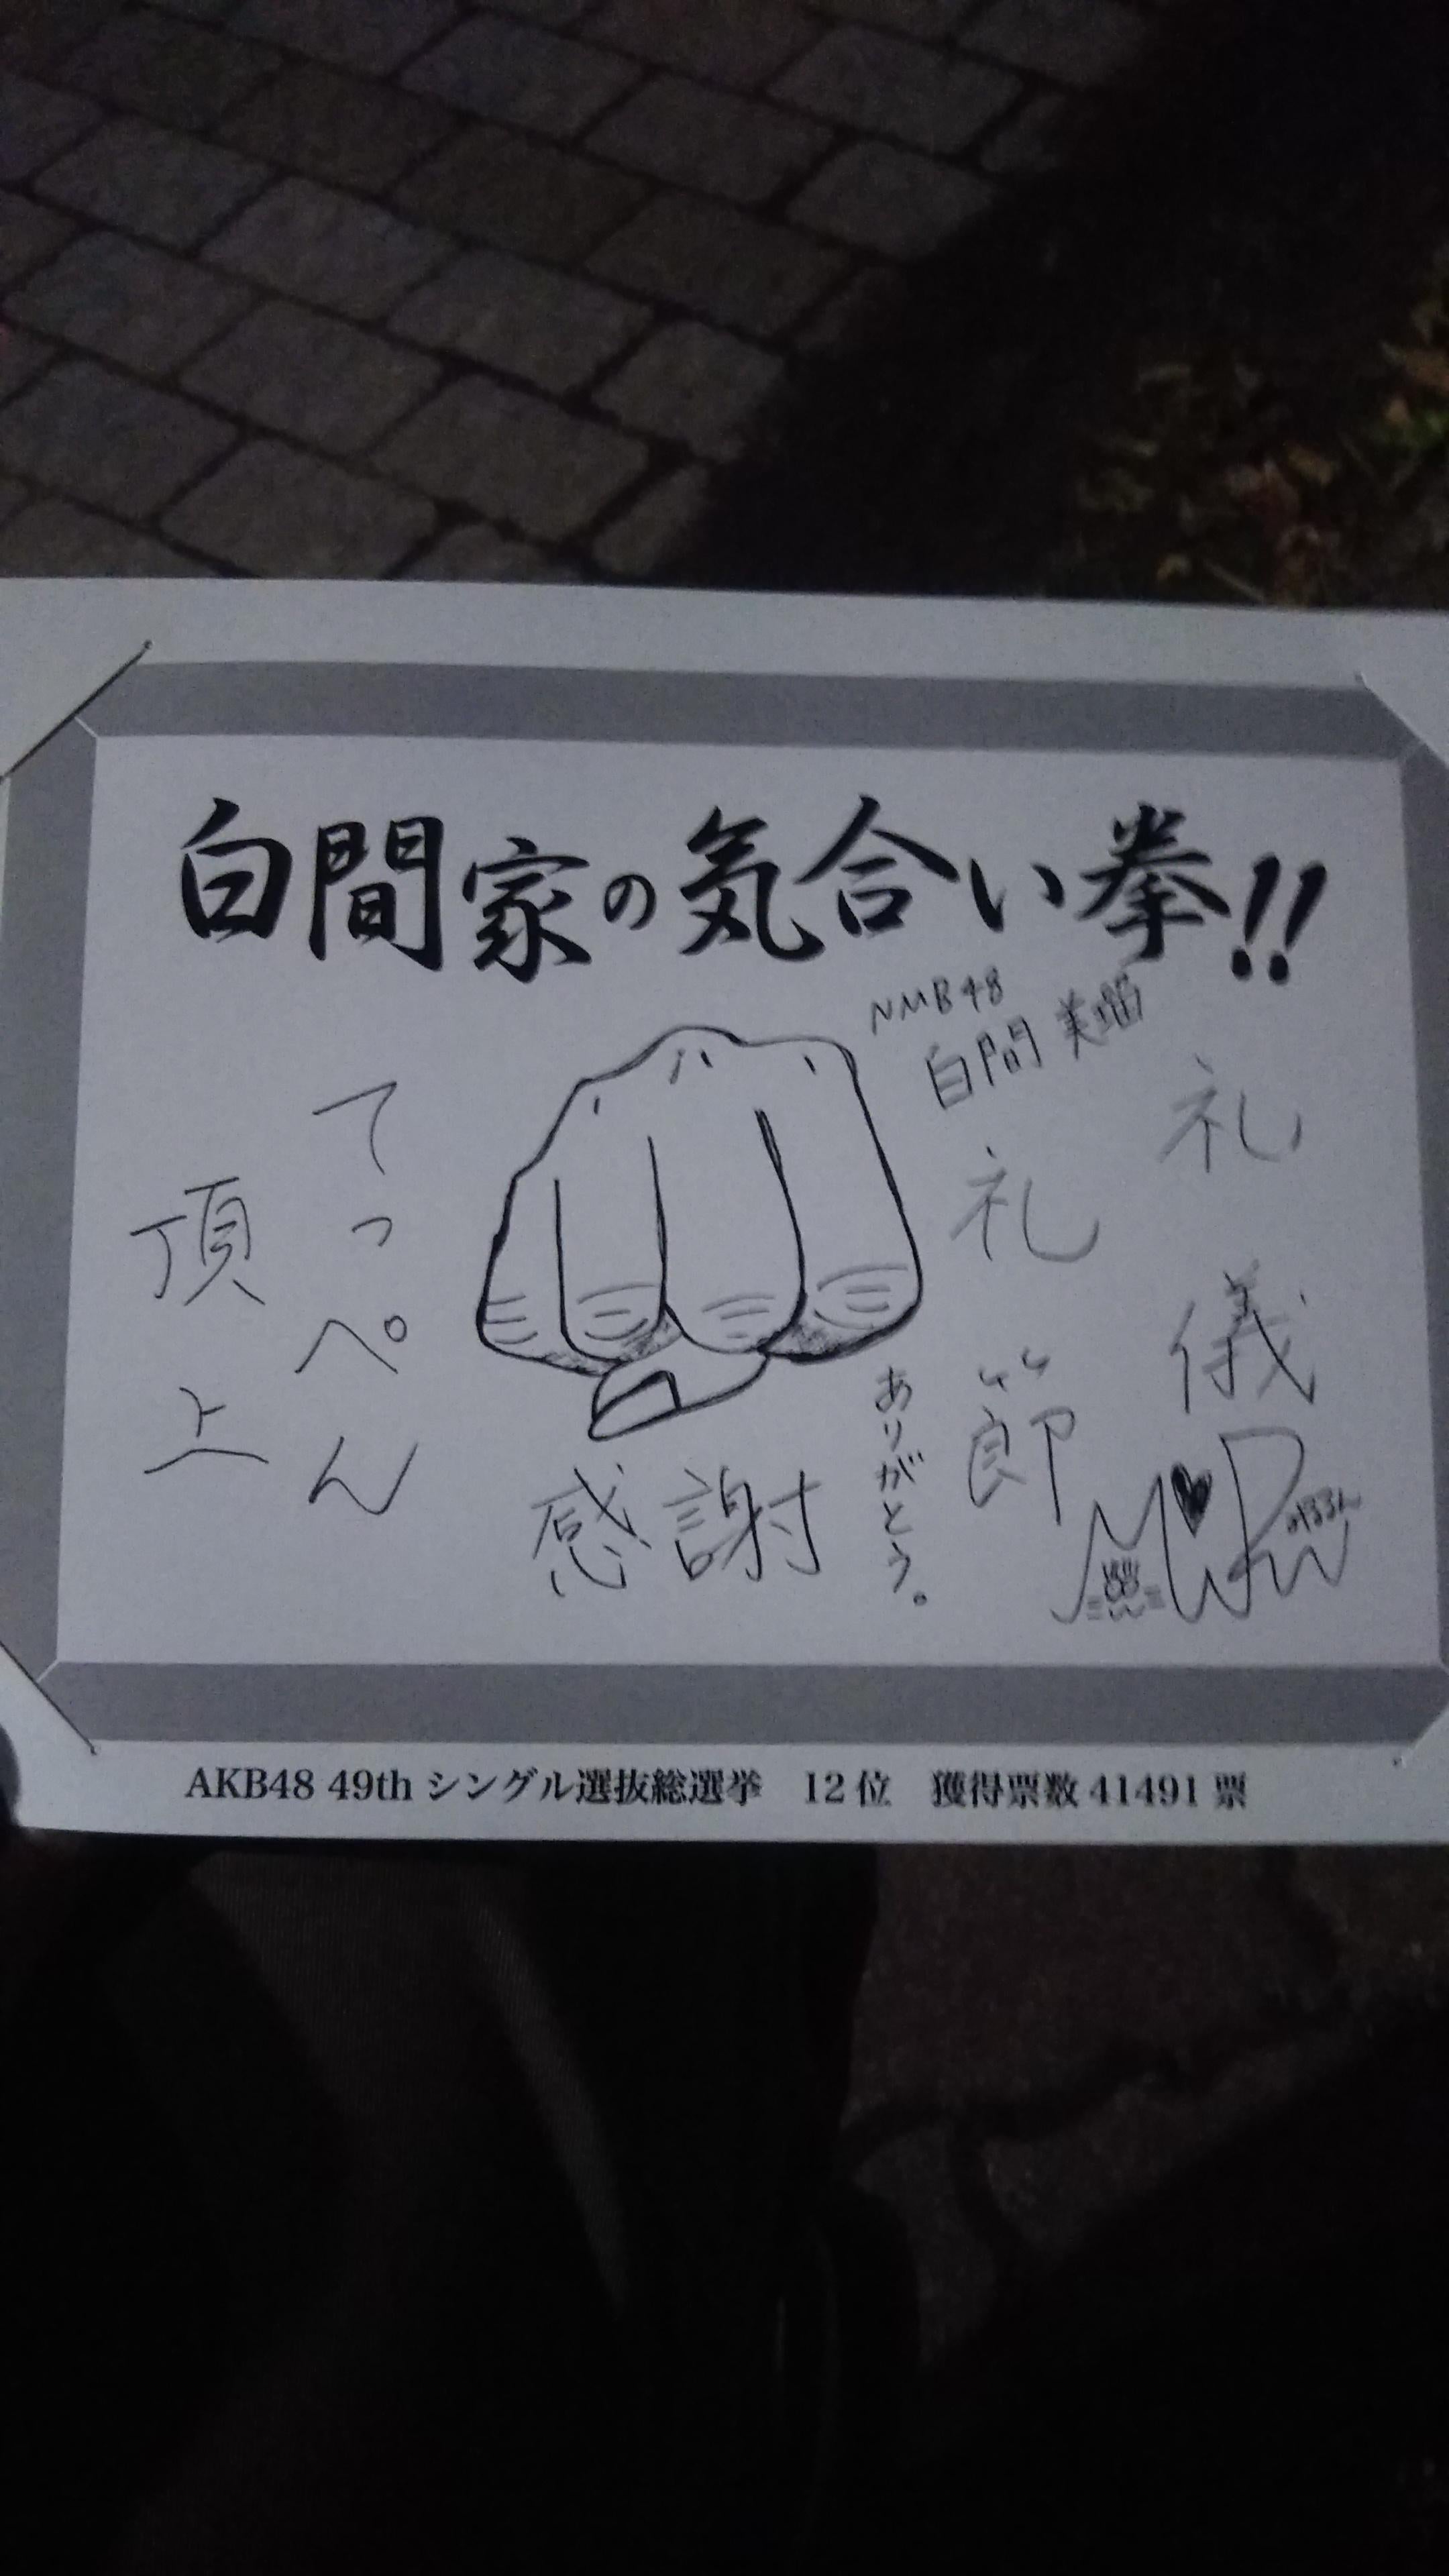 白間家の気合い拳!!
NMB48
白間美瑠
礼儀
礼節
ありがとう。
感謝
てっぺん
頂上
AKB48 49thシングル選抜総選挙 12位 獲得票数41491票